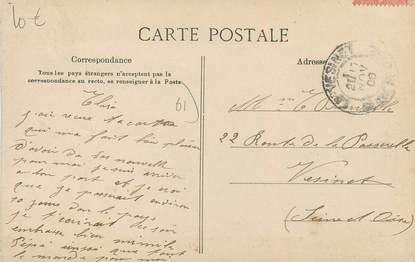 10 €
CARTE POSTALE
Correspondance
Adresse
Tous les pays étrangers n'acceptent pas la
correspondance au recto, se renseigner à la Poste
61
LE VESINET
NOV
09
j'ai recue ta carte
qui ma fait bien plaisir
D'avoir de tes nouvelle
pour moi je suis arrivé
a bon port et je
que je passerait environ
10 jours dans le pays
je t'écrirait
embrasse bien
Pépé ainsi que tout
le monde pour moi
22 Route de la Passerelle
Vesinet
(Seine et Oise)